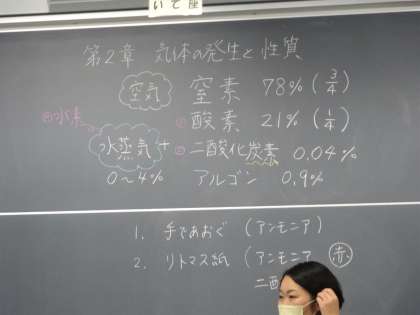 いて座
第2章 気体の発生と性質
空気 窒素 78% (3/4)
④水素 ①酸素 21% (1/4)
水蒸気 + ②二酸化炭素 0.04%
0～4% アルゴン 0.9%
1. 手であおぐ (アンモニア)
2. リトマス紙 (アンモニア 赤
二酸